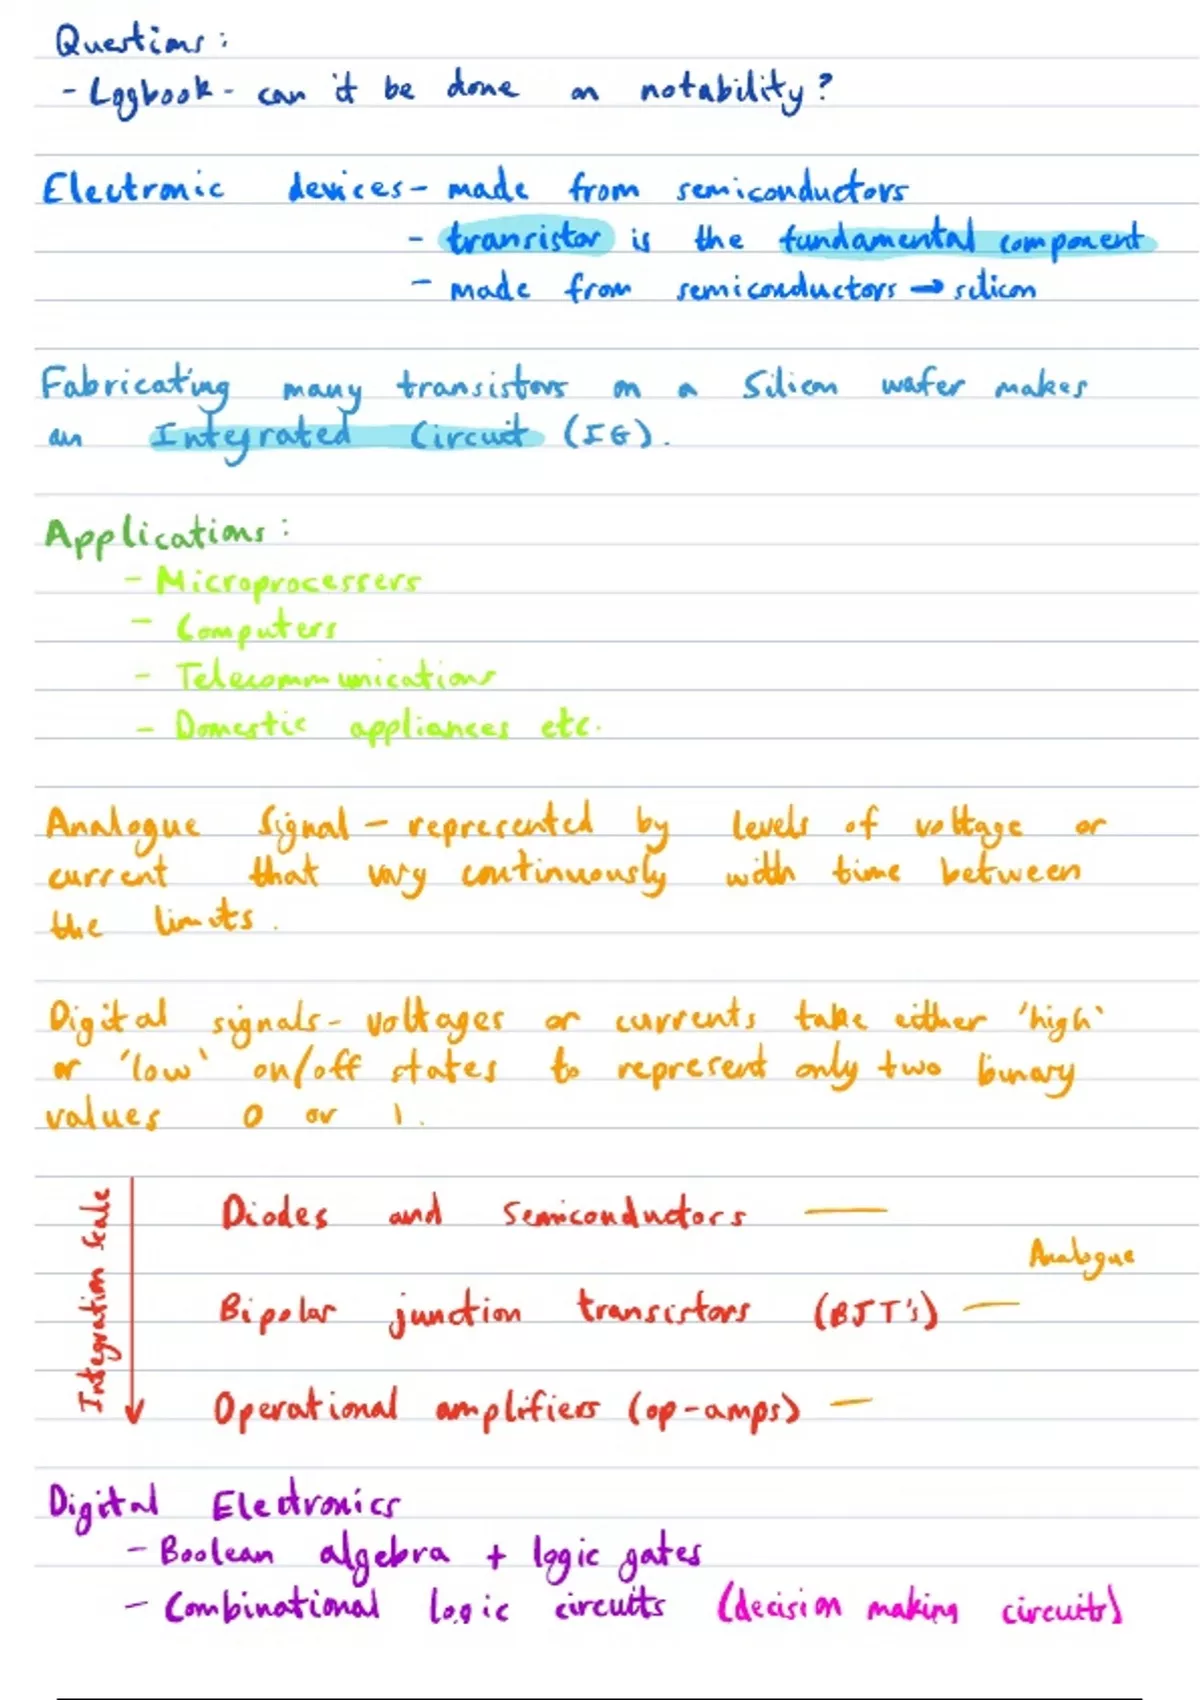 Questions:
- Logbook - can it be done on notability?
Electronic devices - made from semiconductors
- transistor is the fundamental component
- made from semiconductors → silicon
Fabricating many transistors on a Silicon wafer makes
an Integrated Circuit (IG).
Applications:
- Microprocessers
- Computers
- Telecommunications
- Domestic appliances etc.
Analogue Signal - represented by levels of voltage or
current that vary continuously with time between
the limits.
Digital signals - voltages or currents take either 'high'
or 'low' on/off states to represent only two binary
values 0 or 1.
Integration Scale
Diodes and Semiconductors —
Analogue
Bipolar junction transistors (BJT's) —
Operational amplifiers (op-amps) —
Digital Electronics
- Boolean algebra + logic gates
- Combinational logic circuits (decision making circuits)